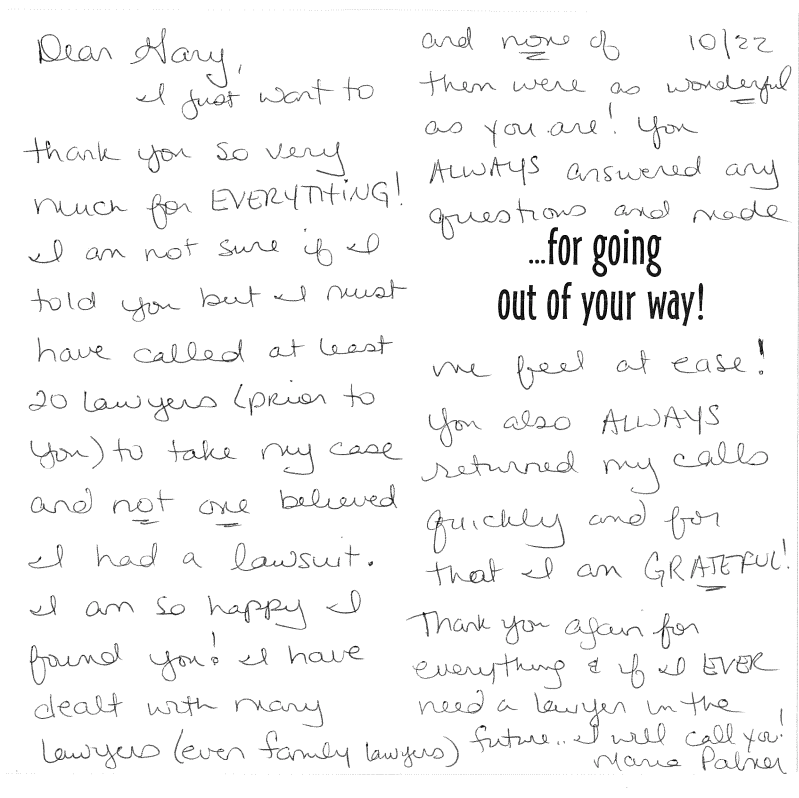 Dear Gary,
I just want to
thank you so very
much for EVERYTHING!
I am not sure if I
told you but I must
have called at least
20 lawyers (prior to
you) to take my case
and not one believed
I had a lawsuit.
I am so happy I
found you! I have
dealt with many
lawyers (even family lawyers)
and none of 10/22
them were as wonderful
as you are! You
ALWAYS answered any
questions and made
...for going
out of your way!
me feel at ease!
You also ALWAYS
returned my calls
quickly and for
that I am GRATEFUL!
Thank you again for
everything & if I EVER
need a lawyer in the
future.. I will call you!
Marie Palmer